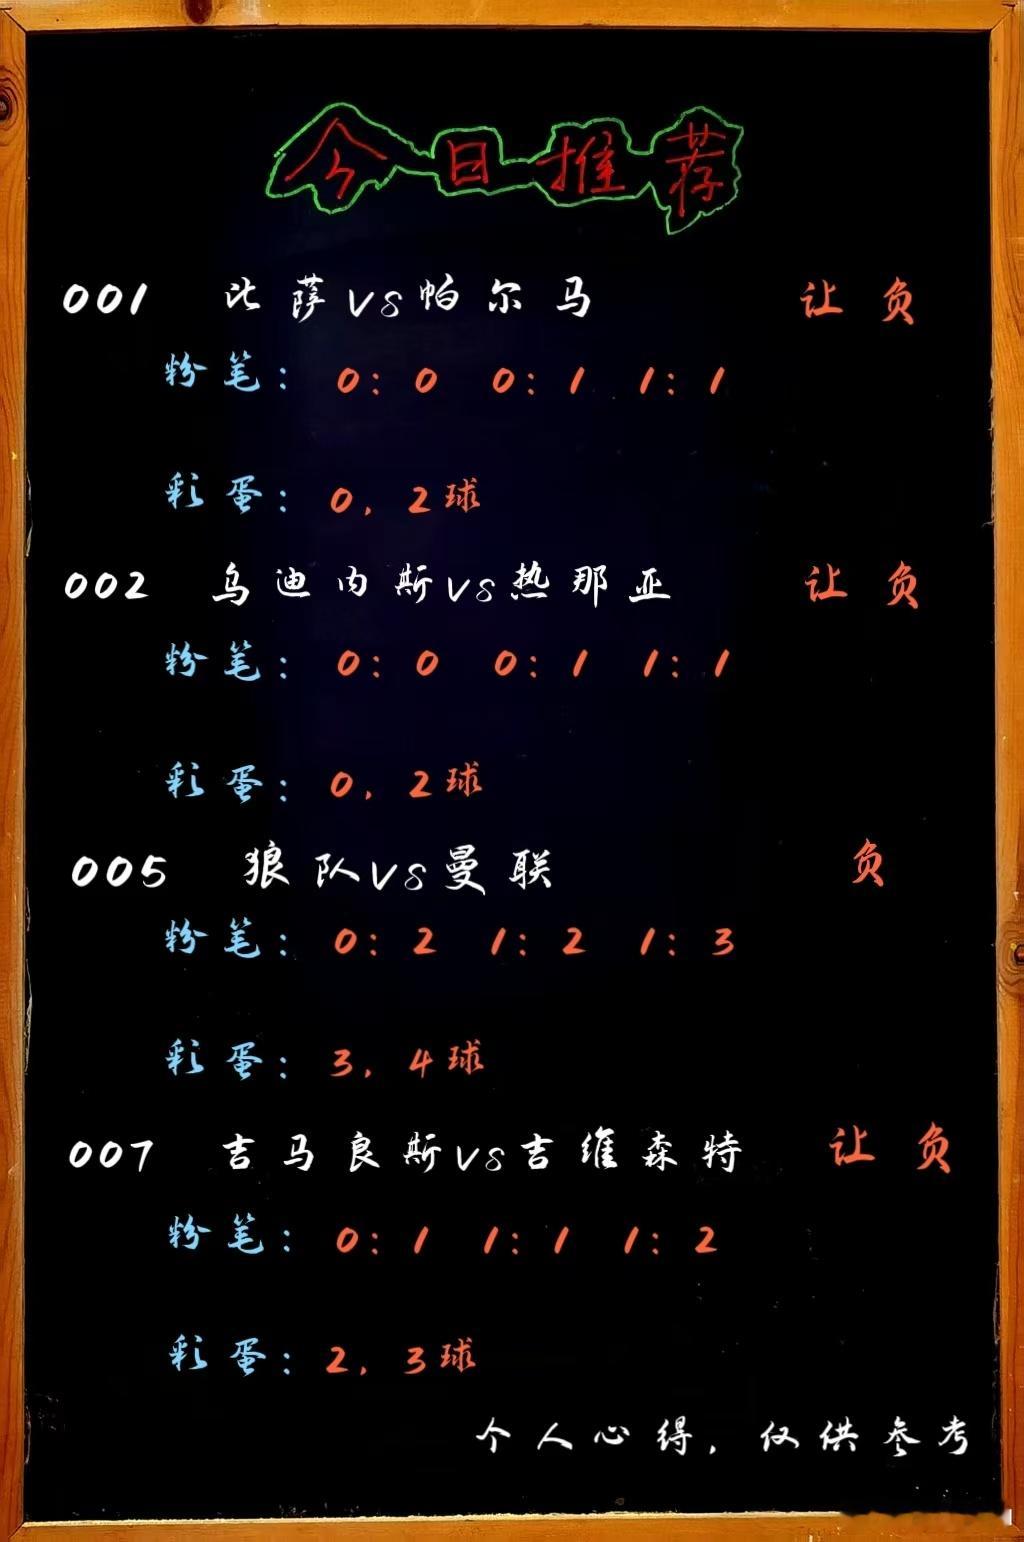 今日推荐
001 比萨vs帕尔马 让负
粉笔：0:0 0:1 1:1
彩蛋：0，2球
002 乌迪内斯vs热那亚 让负
粉笔：0:0 0:1 1:1
彩蛋：0，2球
005 狼队vs曼联 负
粉笔：0:2 1:2 1:3
彩蛋：3，4球
007 吉马良斯vs吉维森特 让负
粉笔：0:1 1:1 1:2
彩蛋：2，3球
个人心得，仅供参考